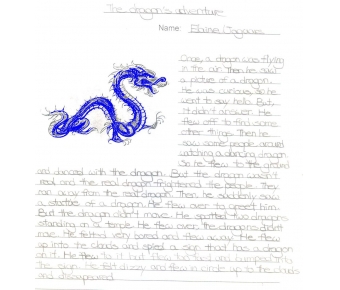 The dragon's adventure
Name: Elaine
Once, a dragon was flying
in the air. Then he saw
a picture of a dragon.
He was curious so he
went to say hello. But,
it didn't answer. He
flew off to find some
other things. Then he
saw some people around
watching a dancing dragon.
So he flew to the ground
and danced with the dragon. But the dragon wasn't
real and the real dragon frightened the people. They
ran away from the real dragon. Then he suddenly saw
a statue of a dragon. He flew over to greet him.
But the dragon didn't move. He spotted two dragons
standing on a temple. He flew over, the dragons didn't
move. He felt very bored and flew away. He flew
up into the clouds and spied a sign that has a dragon
on it. He flew to it but flew too fast and bumped into
the sign. He felt dizzy and flew in circle up to the clouds
and disappeared.